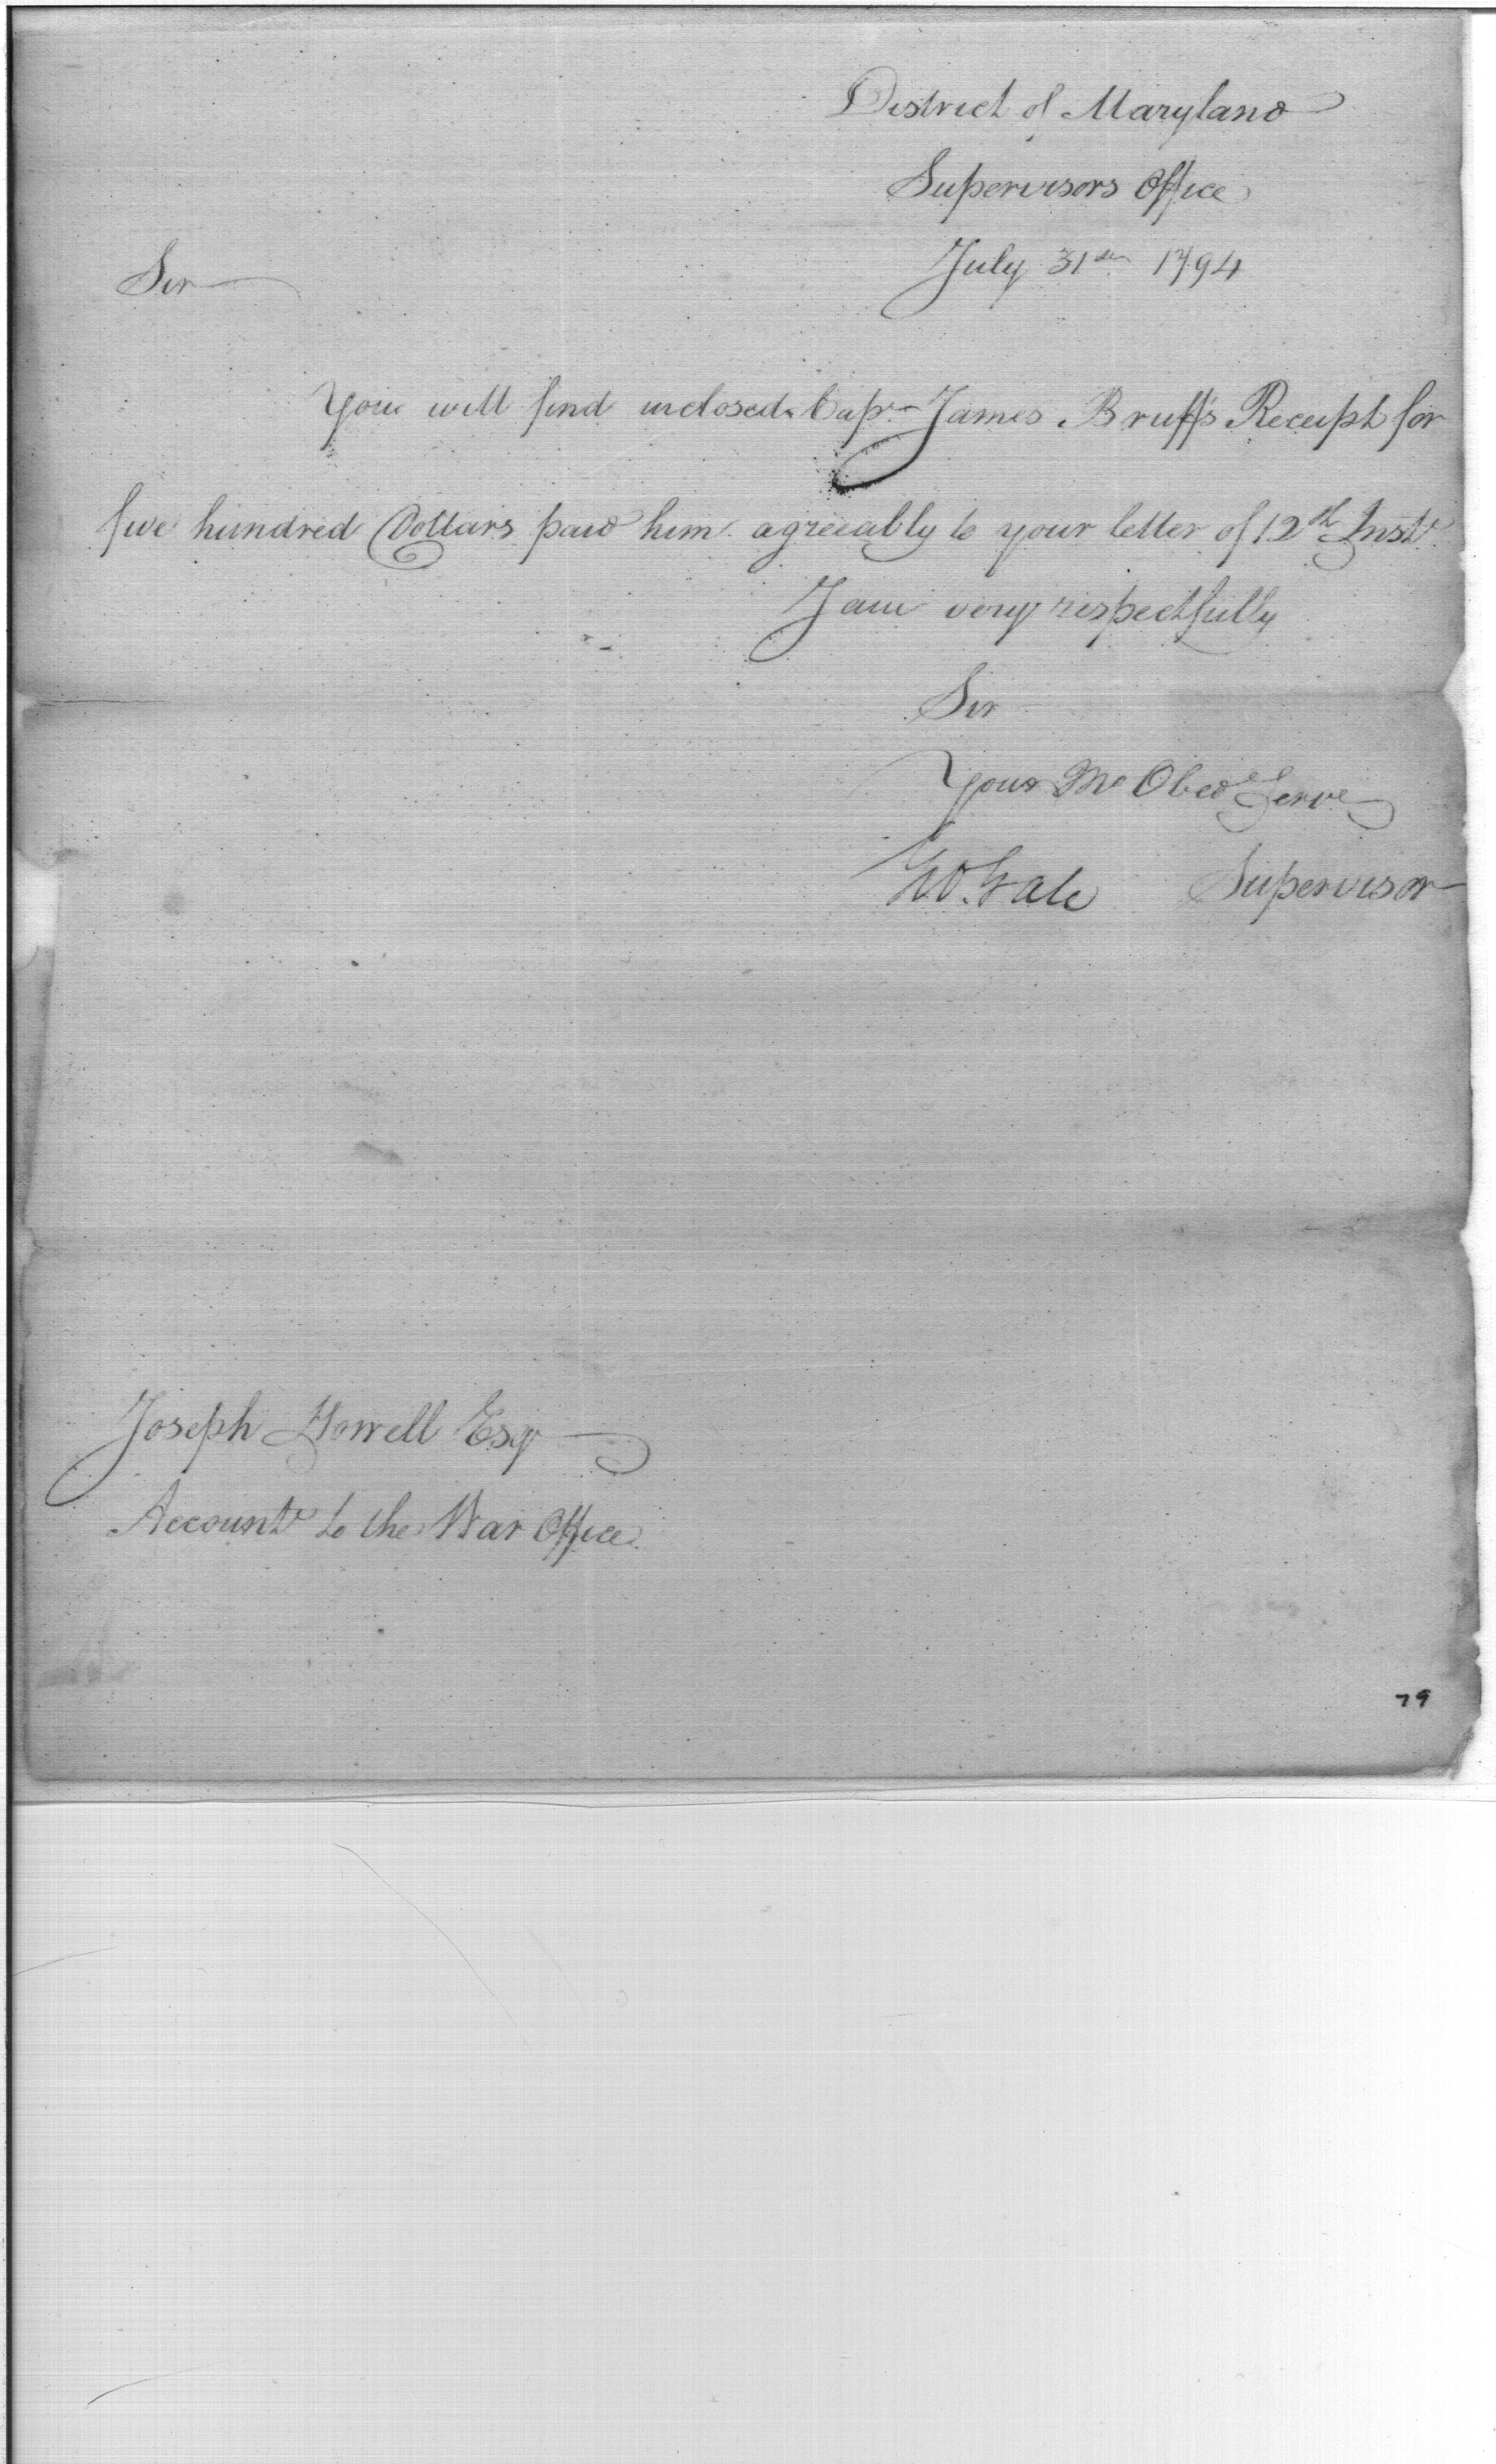 District of Maryland
Supervisors Office
July 31st 1794
Sir
You will find inclosed Capt James Bruff's Receipt for
five hundred Dollars paid him agreeably to your letter of 12th Inst
I am very respectfully
Sir
Your Mo Obed Serve
Gale Supervisor
Joseph Howell Esqr
Accountt to the War Office
79